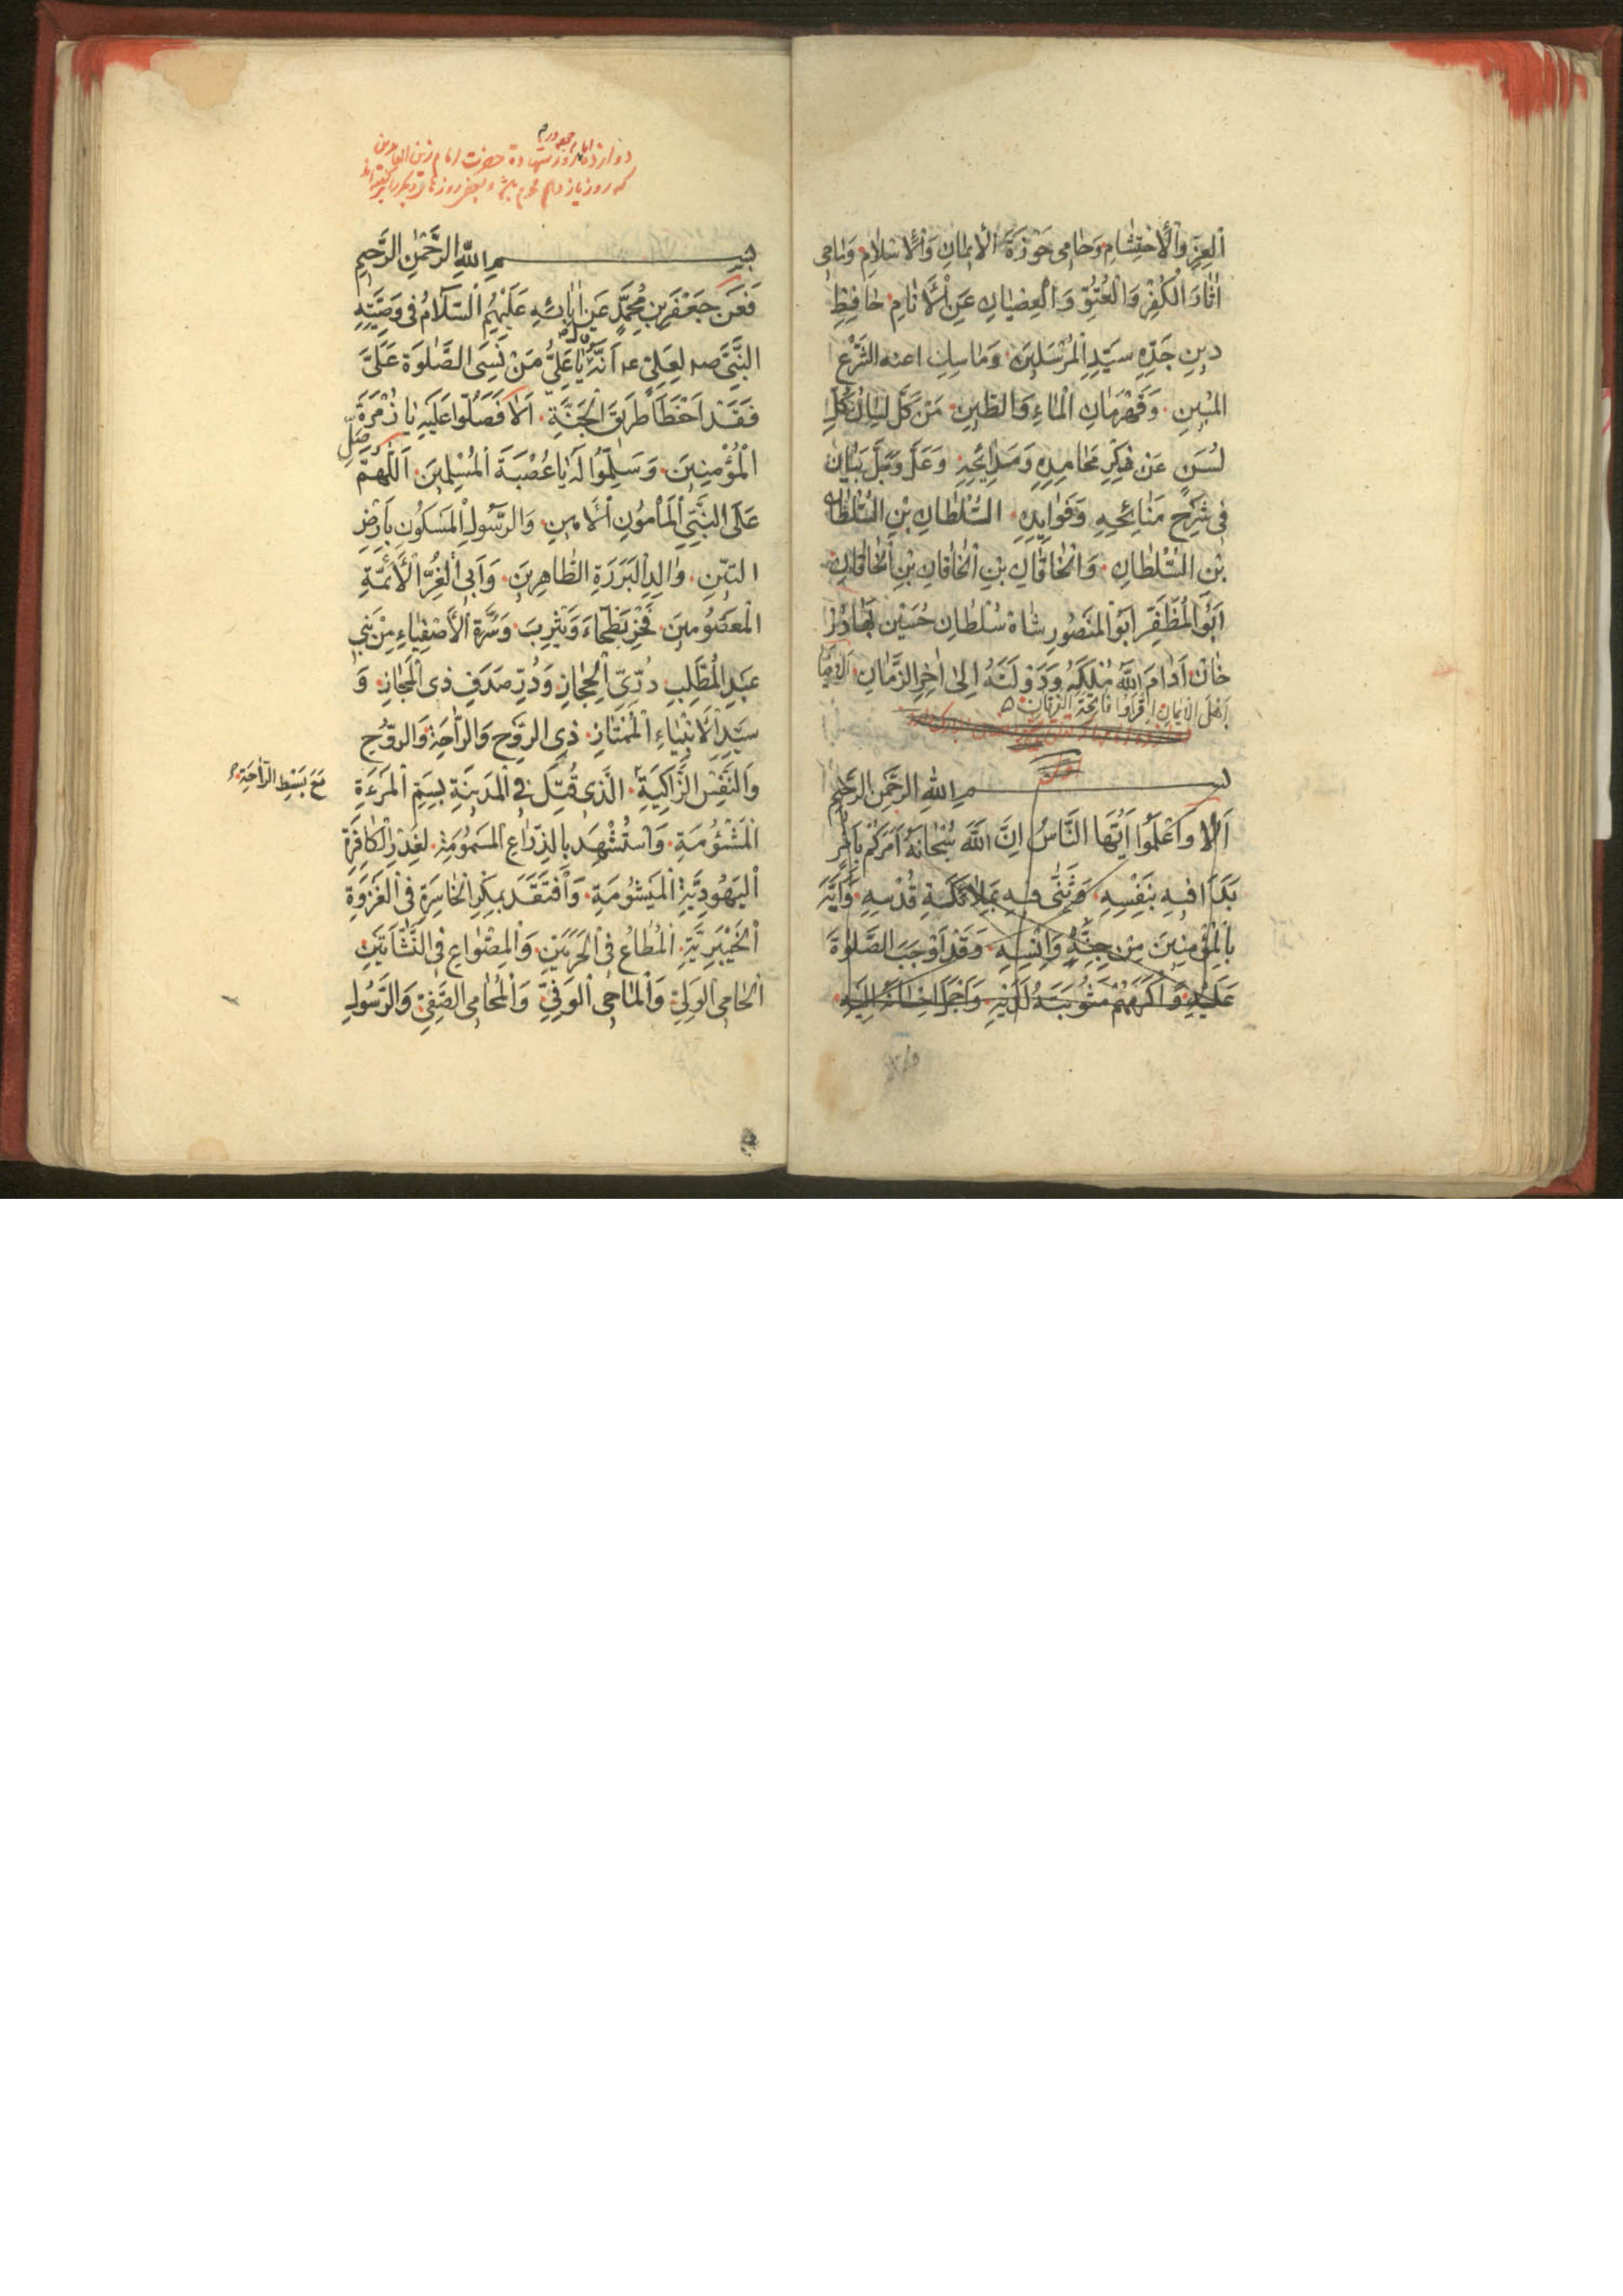 اَلْعِزِّ وَالْاِحْتِشَامِ وَحَامِى حَوْزَةَ الْاِيمَانِ وَالْاِسْلَامِ وَمَاحِى
اٰثَارَ الْكُفْرِ وَالْعُتُوِّ وَالْعِصْيَانِ عَنِ الْاَنَامِ حَافِظِ
دِينِ جَدِّهِ سَيِّدِ الْمُرْسَلِينَ وَمَاسِكِ اعنه الشَّرْعِ
الْمُبِينِ وَقَهْرَمَانِ الْمَاءِ وَالطِّينِ مَنْ كَلَّ لِسَانُ كُلِّ
لُسُنٍ عَنْ ذِكْرِ مَحَامِدِهِ وَمَدَائِحِهِ بَيَانُ
فِى شَرْحِ مَنَائِحِهِ وَفَوَايِدِهِ السُّلْطَانِ بْنِ السُّلْطَانِ
بْنِ السُّلْطَانِ وَالْخَاقَانِ بْنِ الْخَاقَانِ بْنِ الْخَاقَانِ
اَبُو الْمُظَفَّرِ اَبُو الْمَنْصُورِ شَاهْ سُلْطَانِ حُسَيْن بَهَادُرْ
خَانْ اَدَامَ اللّٰهُ مُلْكَهُ وَدَوْلَتَهُ اِلٰى اٰخِرِ الزَّمَانِ
اَهْلَ الْاِيمَانِ اِقْرَؤُا فَاتِحَةَ
بسم الله الرحمن الرحيم
اَلَا وَاعْلَمُوا اَيُّهَا النَّاسُ اِنَّ اللّٰهَ سُبْحَانَهُ اَمَرَكُمْ بِاَمْرٍ
بَدَاَ فِيهِ بِنَفْسِهِ وَثَنّٰى فِيهِ بِمَلَائِكَةِ قُدْسِهِ وَاَيَّهَ
بِالْمُؤْمِنِينَ مِنْ جِنِّهِ وَاِنْسِهِ وَقَدْ اَوْجَبَ الصَّلٰوةَ
عَلَيْهِ وَاَكْرَمَهُمْ مَثُوبَتَهُ لَدَيْهِ
دوازدهم روز شهادة حضرت امام زين العابدين
كه روز يازدهم محرم
بسم الله الرحمن الرحيم
فَعَنْ جَعْفَرِ بْنِ مُحَمَّدٍ عَنْ اٰبَائِهِ عَلَيْهِمُ السَّلَامُ فِى وَصِيَّتِهِ
النَّبِىِّ صه لِعَلِىٍّ ع اَنَّهُ يَا عَلِىُّ مَنْ نَسِىَ الصَّلٰوةَ عَلَىَّ
فَقَدْ اَخْطَاَ طَرِيقَ الْجَنَّةِ اَلَا فَصَلُّوا عَلَيْهِ يَا زُمْرَةَ
الْمُؤْمِنِينَ وَسَلِّمُوا لَهُ يَا عُصْبَةَ الْمُسْلِمِينَ اَللّٰهُمَّ صَلِّ
عَلَى النَّبِىِّ الْمَأْمُونِ الْاَمِينِ وَالرَّسُولِ الْمَسْكُونِ بِاَرْضِ
التِّينِ وَالِدِ الْبَرَرَةِ الطَّاهِرِينَ وَاَبِى الْغُرِّ الْاَئِمَّةِ
الْمَعْصُومِينَ فَخْرِ بَطْحَاءَ وَيَثْرِبَ وَسُرَّةِ الْاَصْفِيَاءِ مِنْ بَنِى
عَبْدِ الْمُطَّلِبِ دُرِّىِّ الْحِجَازِ وَدُرِّ صَدَفِ ذِى الْمَجَازِ وَ
سَيِّدِ الْاَنْبِيَاءِ الْمُمْتَازِ ذِى الرَّوْحِ وَالرَّاحَةِ وَالرُّوحِ
مَعَ بَسْطِ الرَّاحَةِ
وَالنَّفْسِ الزَّاكِيَةِ الَّذِى قُتِلَ فِى الْمَدِينَةِ بِسَمِّ الْمَرْءَةِ
الْمَشْئُومَةِ وَاسْتُشْهِدَ بِالذِّرَاعِ الْمَسْمُومَةِ لِغَدْرِ الْكَافِرَةِ
الْيَهُودِيَّةِ الْمَيْشُومَةِ وَافْتَقَدَ بِمَكْرِ الْخَاسِرَةِ فِى الْغَزْوَةِ
الْخَيْبَرِيَّةِ الْمُطَاعِ فِى الْحَرَمَيْنِ وَالْمِصْوَاعِ فِى النَّشْاَتَيْنِ
الْحَامِى الْوَلِىِّ وَالْمَاحِى الْوَفِىِّ وَالْمُحَامِى الصَّفِىِّ وَالرَّسُولِ